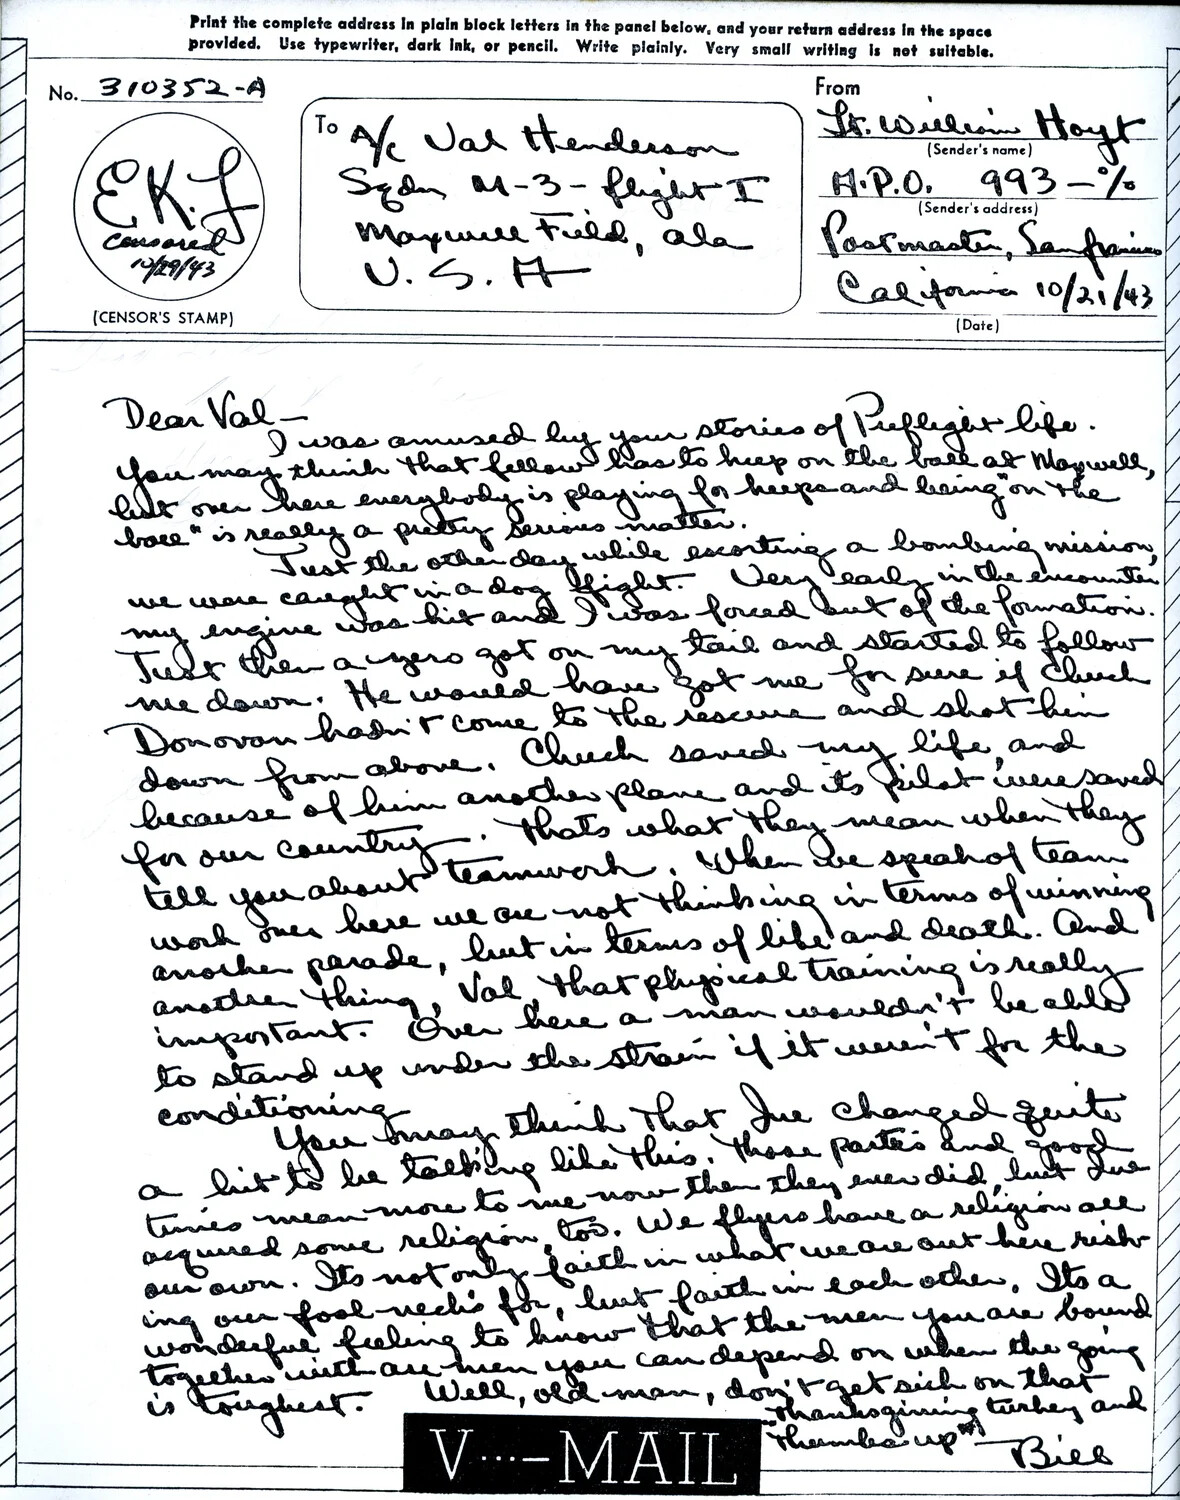 Print the complete address in plain block letters in the panel below, and your return address in the space
provided. Use typewriter, dark ink, or pencil. Write plainly. Very small writing is not suitable.
No. 310352-A
E.K.L
Censored
10/29/43
(CENSOR'S STAMP)
To A/C Val Henderson
Sqdn M-3 - flight I
Maxwell Field, Ala
U. S. A
From
Lt. William Hoyt
(Sender's name)
A.P.O. 993 - %
(Sender's address)
Postmaster, San francisco
California 10/21/43
(Date)
Dear Val —
I was amused by your stories of Preflight life.
You may think that fellow has to keep on the ball at Maxwell,
but over here everybody is playing for keeps and being "on the
ball" is really a pretty serious matter.
Just the other day while escorting a bombing mission,
we were caught in a dog fight. Very early in the encounter
my engine was hit and I was forced out of the formation.
Just then a zero got on my tail and started to follow
me down. He would have got me for sure if Chuck
Donovan hadn't come to the rescue and shot him
down from above. Chuck saved my life, and
because of him another plane and its pilot were saved
for our country. Thats what they mean when they
tell you about teamwork. When we speak of team
work over here we are not thinking in terms of winning
another parade, but in terms of life and death. And
another thing, Val, that physical training is really
important. Over here a man wouldn't be able
to stand up under the strain if it weren't for the
conditioning
You may think that Ive changed quite
a bit to be talking like this. Those parties and good
times mean more to me now then they ever did, but Ive
acquired some religion, too. We flyers have a religion all
our own. Its not only faith in what we are out here risk-
ing our fool necks for, but faith in each other. Its a
wonderful feeling to know that the men you are bound
together with are men you can depend on when the going
is toughest. Well, old man, don't get sick on that
Thanksgiving turkey and
"thumbs up" —
Bill
V···—MAIL